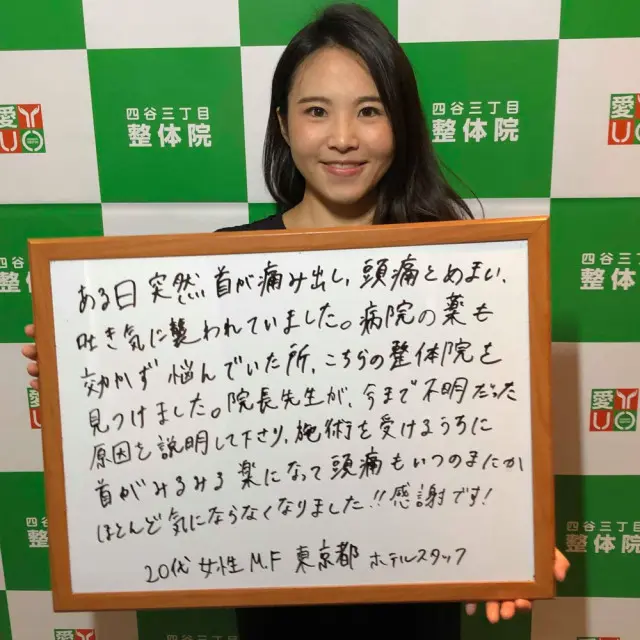 四谷三丁目
整体院
四谷三丁目
整体院
愛Y
UO
愛
UO
四谷
整
四谷三丁
整体
ある日突然首が痛み出し、頭痛とめまい、
吐き気に襲われていました。病院の薬も
効かず悩んでいた所、こちらの整体院を
見つけました。院長先生が、今まで不明だった
原因を説明して下さり、施術を受けるうちに
首がみるみる楽になって頭痛もいつのまにか
ほとんど気にならなくなりました!!感謝です!
20代 女性 M.F 東京都 ホテルスタッフ
愛Y
UO
愛Y
UO
四谷三
整体
四谷三丁目
整体院
愛Y